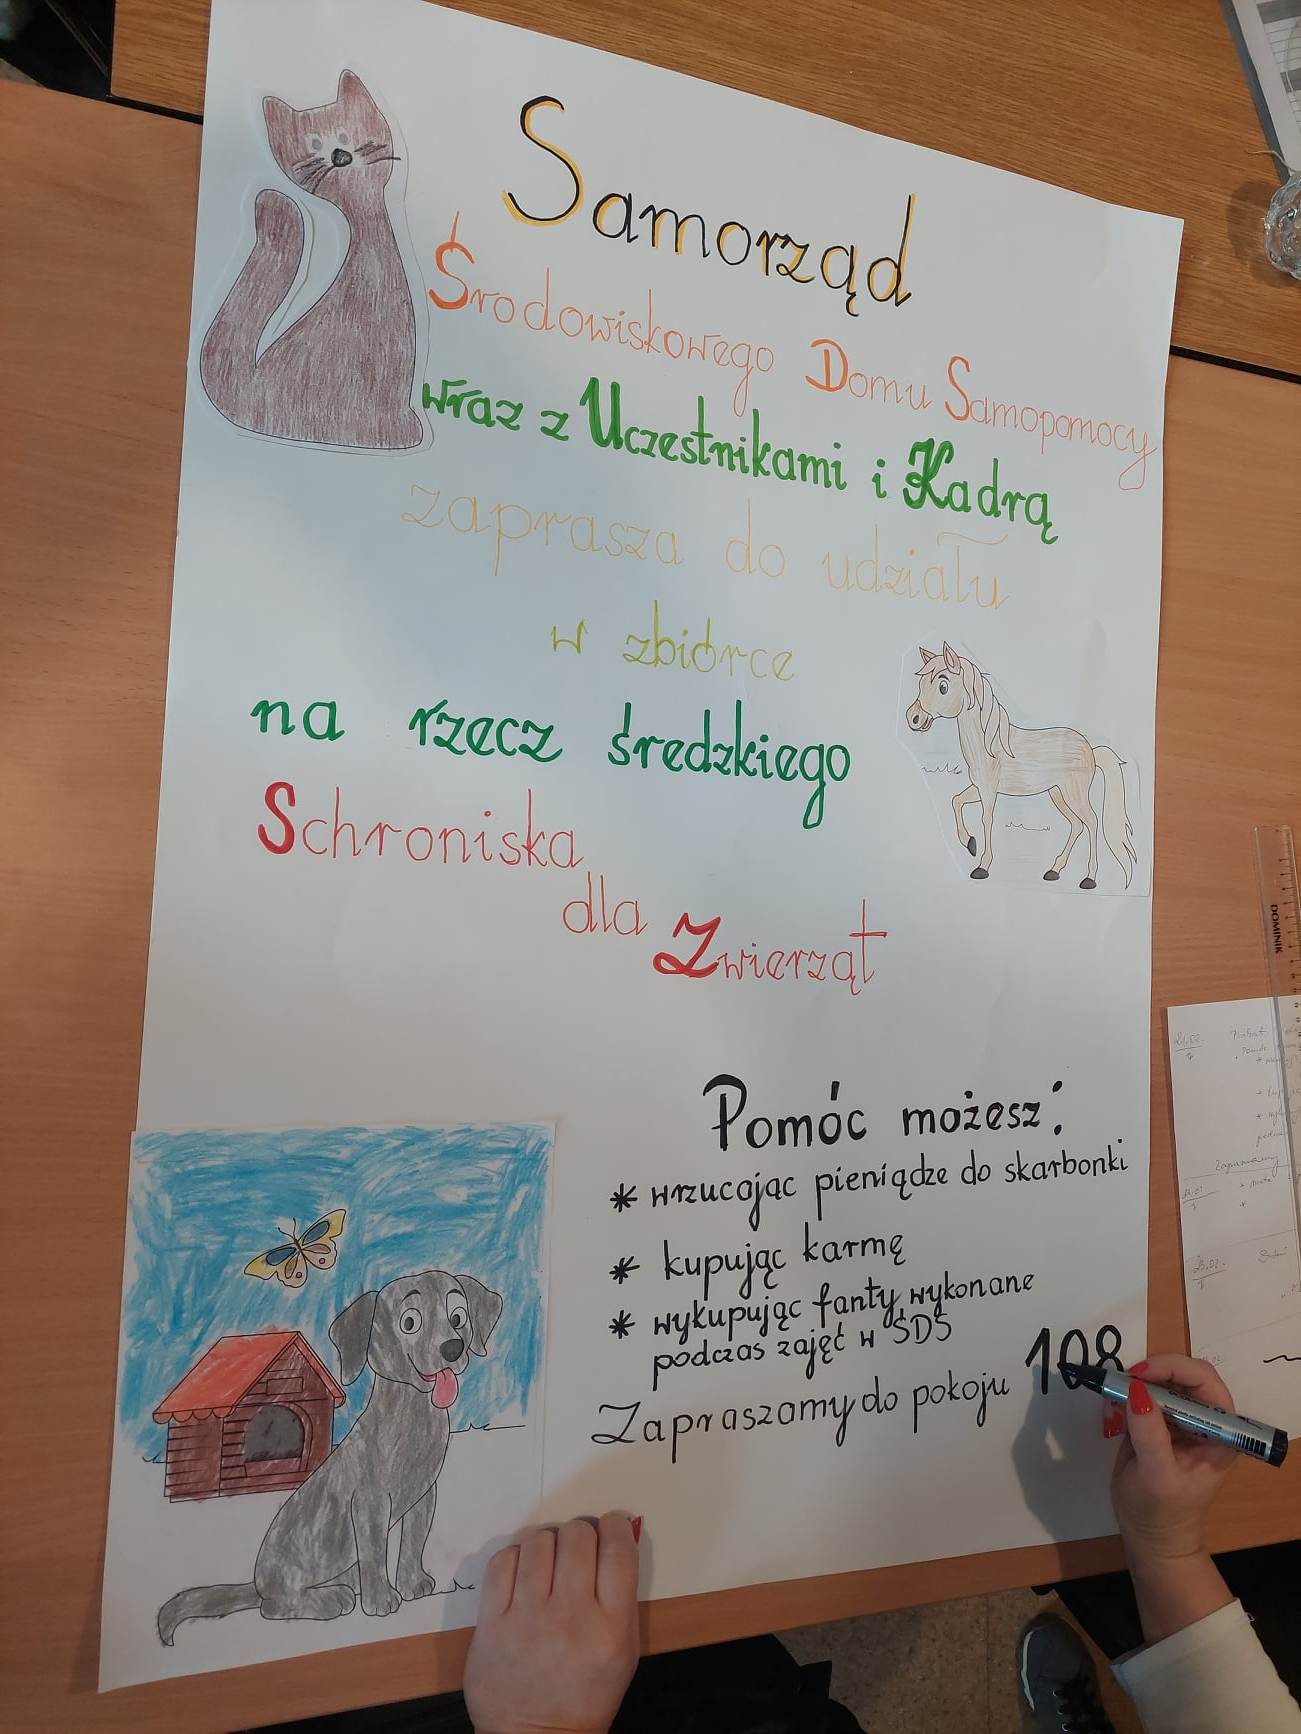 Samorząd
Środowiskowego Domu Samopomocy
wraz z Uczestnikami i Kadrą
zaprasza do udziału
w zbiórce
na rzecz średzkiego
Schroniska
dla Zwierząt
Pomóc możesz:
* wrzucając pieniądze do skarbonki
* kupując karmę
* wykupując fanty wykonane
podczas zajęć w ŚDS
Zapraszamy do pokoju 108
DOMINIK